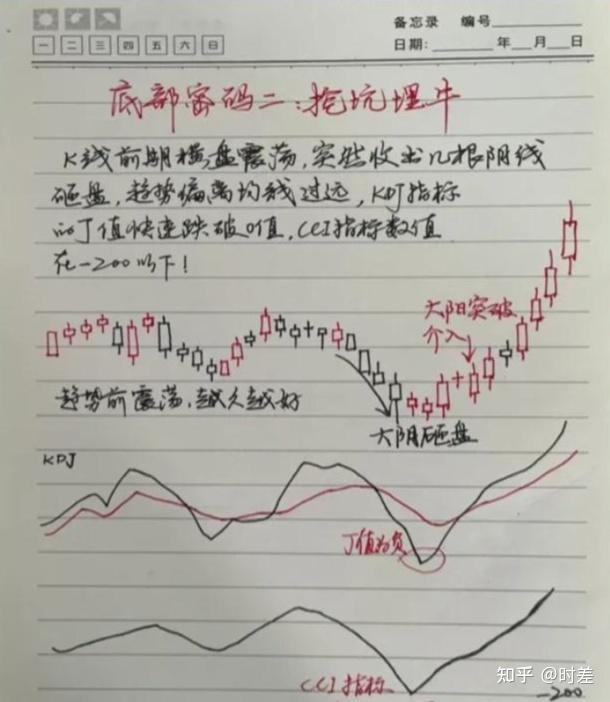 备忘录 编号
一 二 三 四 五 六 日
日期: 年 月 日
底部密码二:挖坑埋牛
K线前期横盘震荡,突然收出几根阴线
砸盘,趋势偏离均线过远,KDJ指标
的J值快速跌破0值,CCI指标数值
在-200以下!
大阳突破
介入
趋势前震荡,越久越好
大阴砸盘
KDJ
J值为负
CCI指标
-200
知乎 @时差